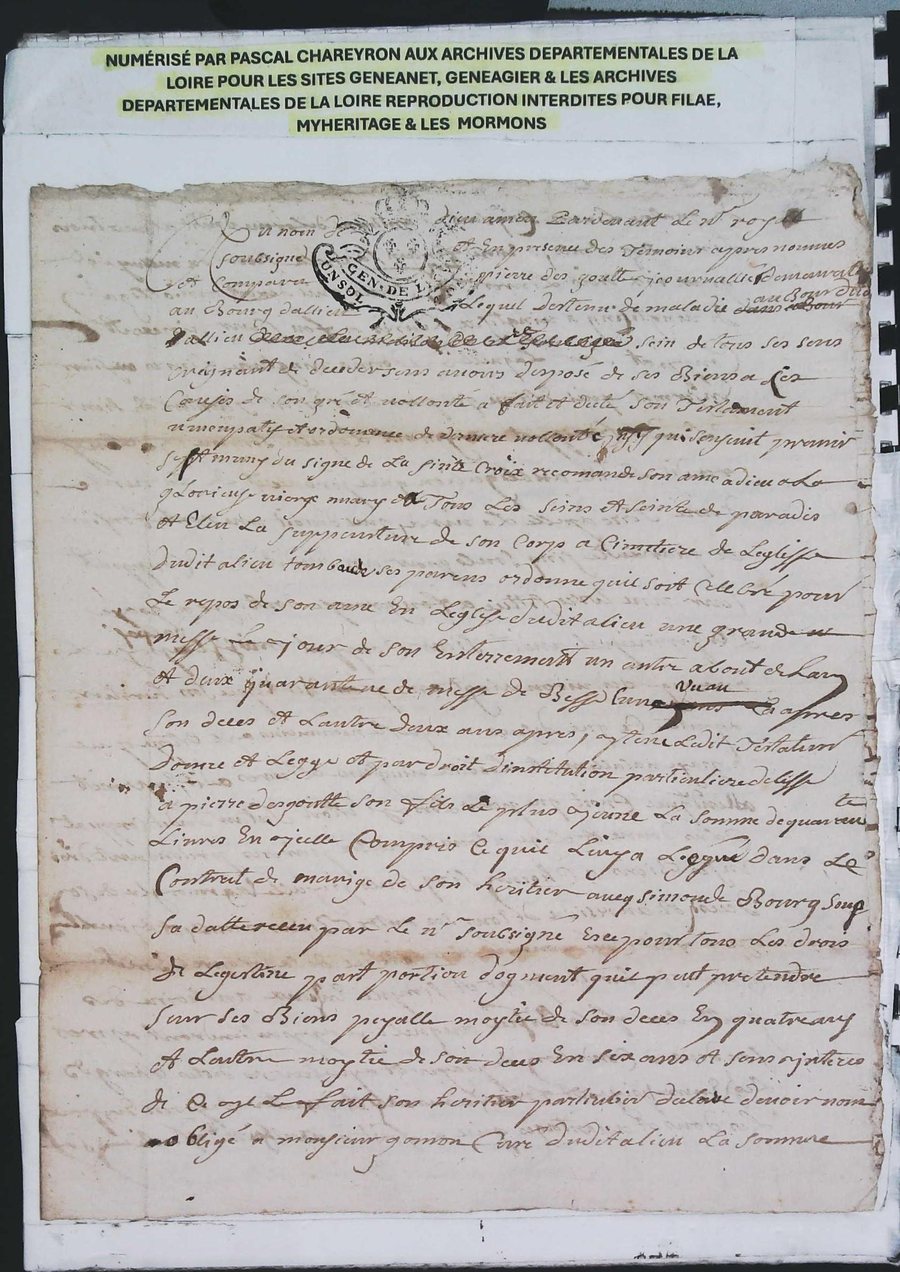 NUMÉRISÉ PAR PASCAL CHAREYRON AUX ARCHIVES DEPARTEMENTALES DE LA
LOIRE POUR LES SITES GENEANET, GENEAGIER & LES ARCHIVES
DEPARTEMENTALES DE LA LOIRE REPRODUCTION INTERDITES POUR FILAE,
MYHERITAGE & LES MORMONS
Au nom de dieu amen Pardevant le nre royal
soubsigné et En presence des Temoins apres nommes
et Comparu pierre des goutte journallier demeurant
GEN. DE L
UN SOL
au Bourg dallieu Lequel destenu de maladie au Bourg dud
dallieu sein de tous ses sens
craignant de deceder sans avoir disposé de ses Biens a ses
Causes de son gré et vollonté a fait et dicté son Testament
nuncupatif et ordonance de derniere vollonté qui sensuit premier
sest muny du signe de La sinte Croix recomande son ame a dieu a La
glorieuse vierge mary et a Tous Les seins et seinte de paradis
et Eleu La suppculture de son Corps a Cimitiere de Leglisse
dudit alieu tombaude ses parens ordonne quil soit Cellebré pour
Le repos de son ame En Leglise dudit alieu une grande
messe jour de son Enterrement un autre a bout de Lan
et deux quarantene de messe de Basse Lune un an apres
son deces et Lautre deux ans apres, Ledit Testateur
donne et Legge et par droit dinstitution particuliere delesse
a pierre desgoutte son fils Le plus jeune La somme de quarante
Livres En ycelle Compris Ce quil Luy a Leggué dans Le
Contrat de mariage de son heritier avecq simonde Bourg
sa datte receu par Le nre soubsigné pour tous Les drois
de Legestime part portion dogment quil peut pretendre
sur ses Biens peyalle moytie de son deces En quatre ans
et Lautre moytie de son deces En six ans et sans interes
de Ce Le fait son heritier particulier declare devoir
obligé a monsieur gomon Curé dudit alieu La somme